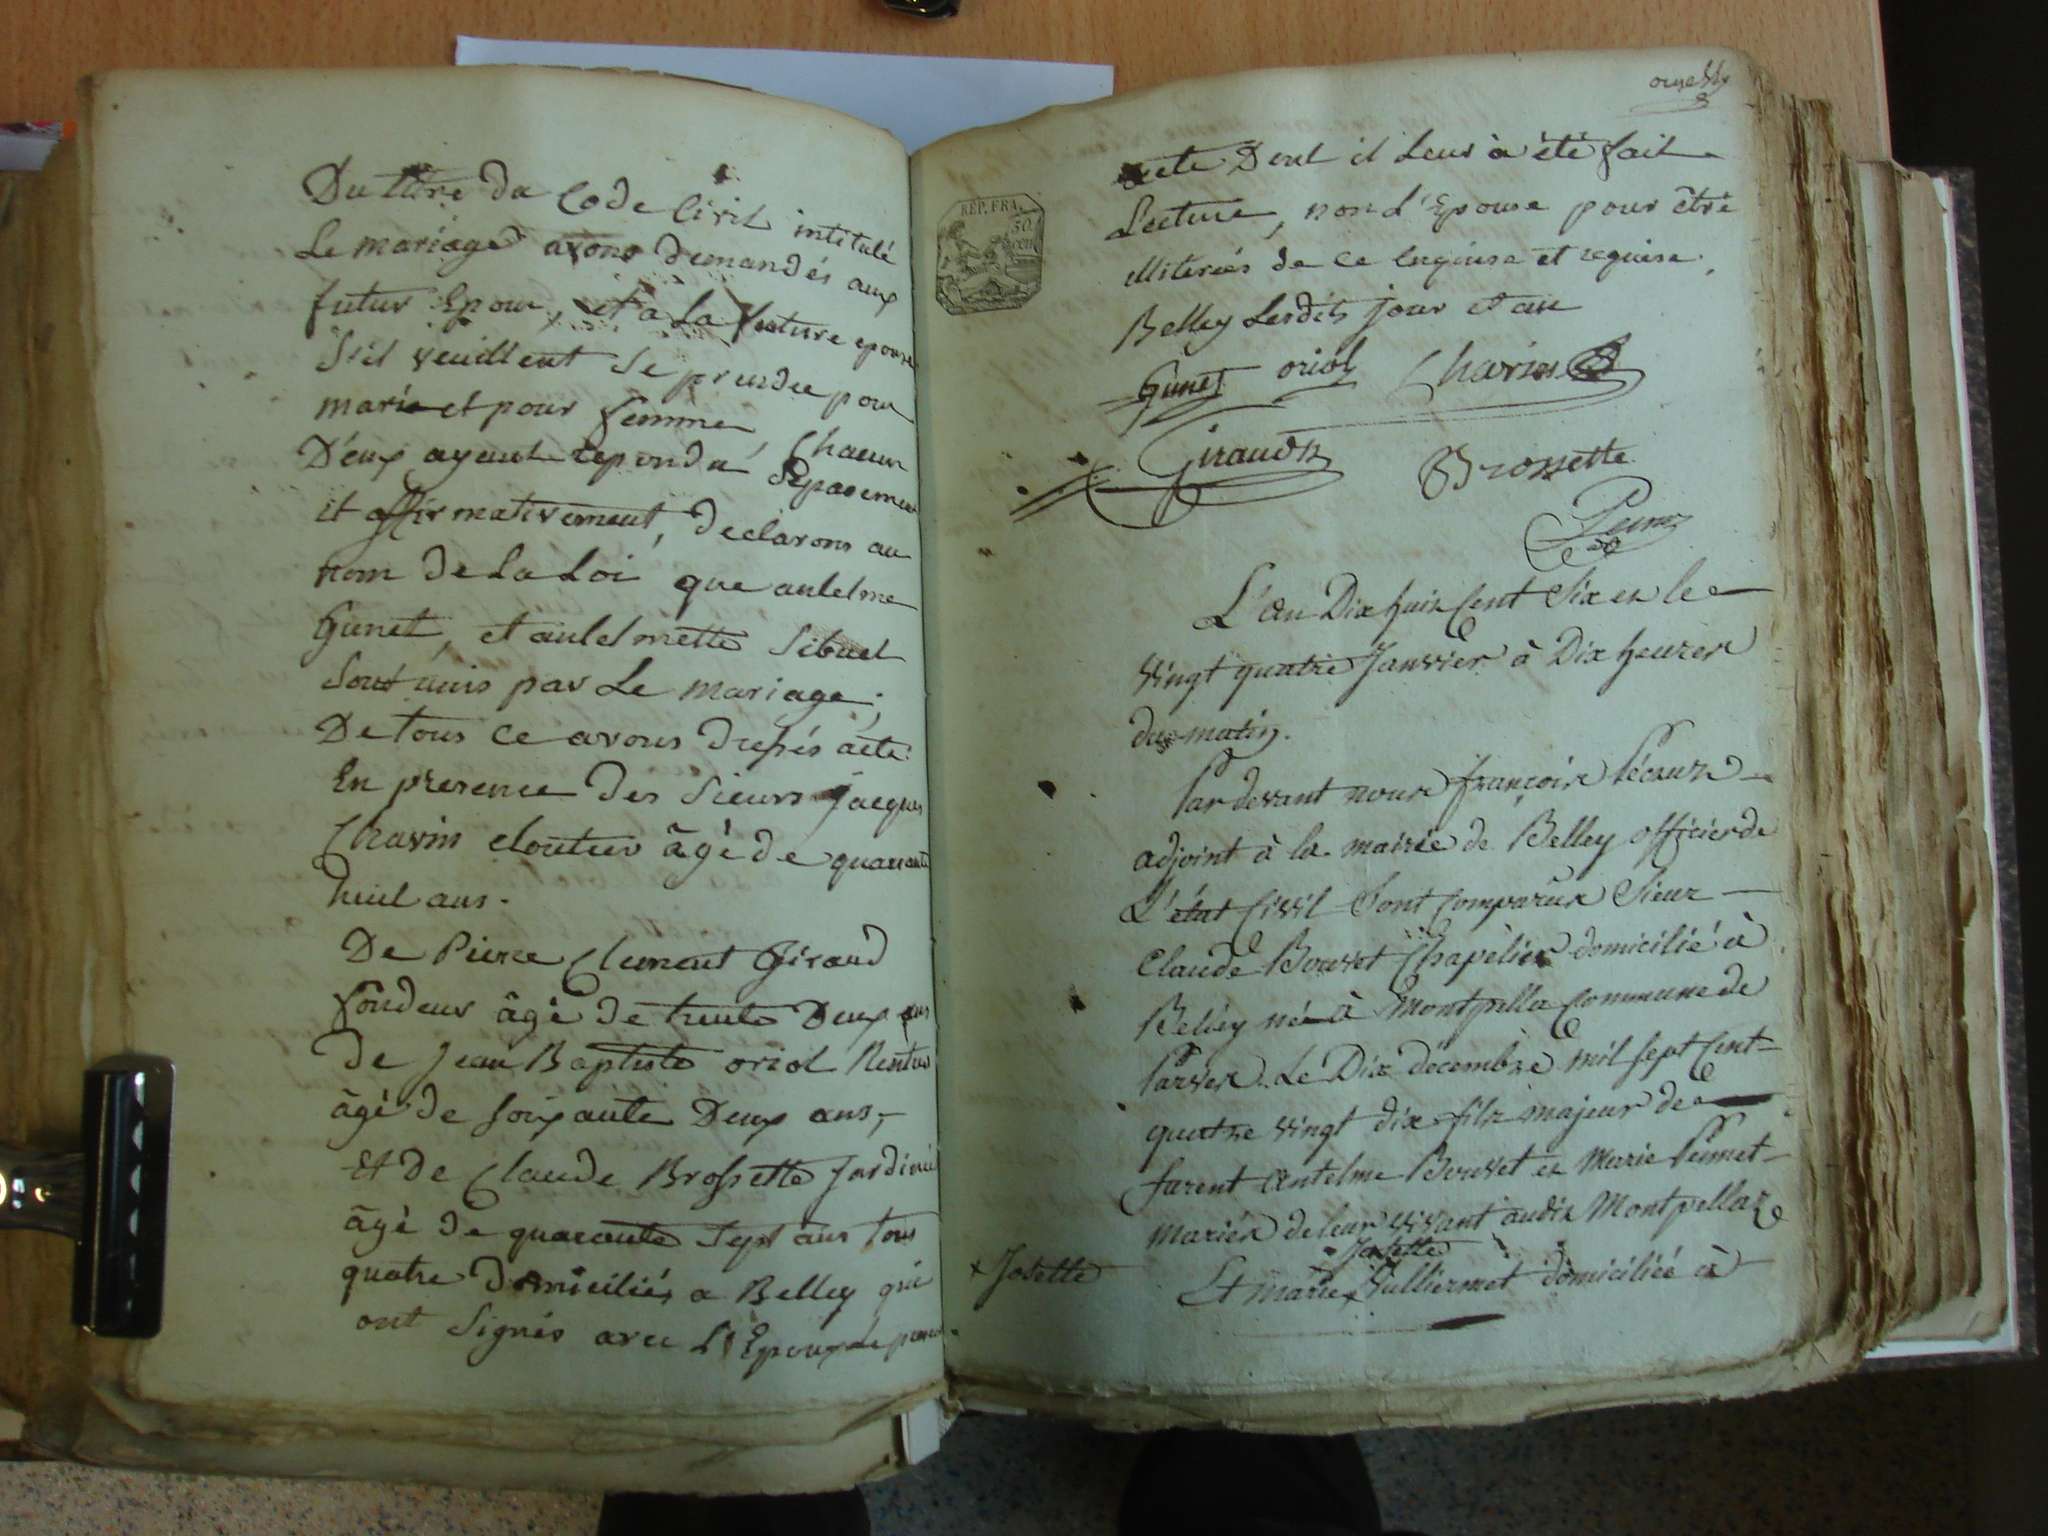 Du titre du Code Civil intitulé
Le mariage avons demandés aux
futur Epoux, et a La future epouse
S'il veuillent Se prendre pour
marie et pour femme, Chacun
D'eux ayant repondu Séparement
et affirmativement, declarons au
nom de La Loi que antelme
Gunet, et antelmette Sibuet
Sont unis par Le mariage;
De tous ce avons dressés acte
En presence des Sieurs Jacques
Chavin cloutier âgé de quarante
huit ans.
De Pierre Clement Giraud
fondeur âgé de trente Deux ans
de Jean Baptiste oriol Rentier
âgé de Soixante Deux ans,
Et de Claude Brossette Jardinier
âgé de quarante Sept ans tous
quatre Domiciliés a Belley qui
ont Signés avec L'Epoux Le present
onze
REP. FRA.
50
cen
acte Dont il Leur à été fait
Lecture, non L'Epouse pour être
illiterées de ce enquise et requise.
Belley Lesdits jour et an
Gunet oriol Chavin
Giraud
Brossette
L'an Dix huit Cent Six et le
vingt quatre Janvier à Dix heures
du matin.
Pardevant nous françois
adjoint à la mairie de Belley officier de
L'état Civil Sont Comparus Sieur
Claude Bouvet Chapelier domicilié à
Belley né à Montpella Commune de
Parves Le Dix décembre mil sept Cent
quatre vingt dix fils majeur de
furent Antelme Bouvet et Marie Peinnet
mariés de leur vivant audit Montpellaz
Josette
+ Josette
Et marie Vulliermet domiciliée à